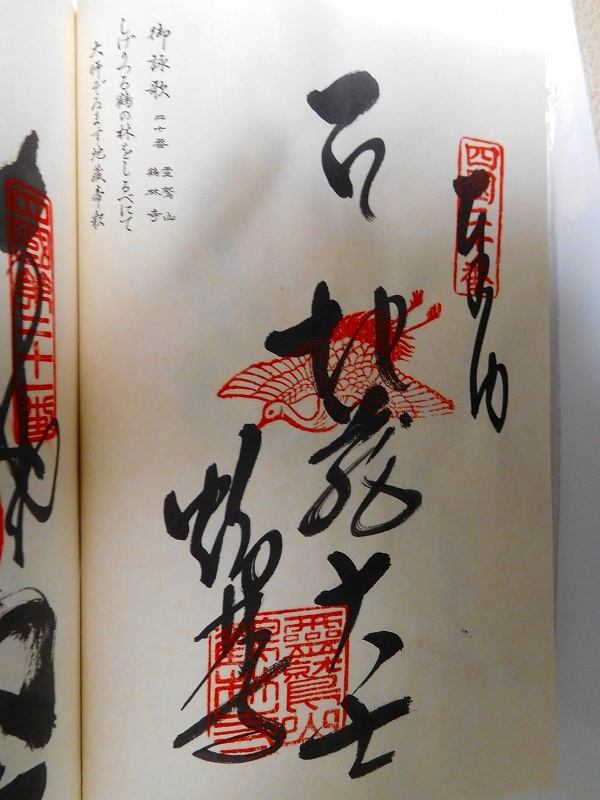 奉納
地蔵大士
鶴林寺
靈鷲山
鶴林寺
御詠歌 二十番 霊鷲山 鶴林寺
しげりつる鶴の林をしるべにて
大師ぞゐます地蔵帝釈
四國第二十一番